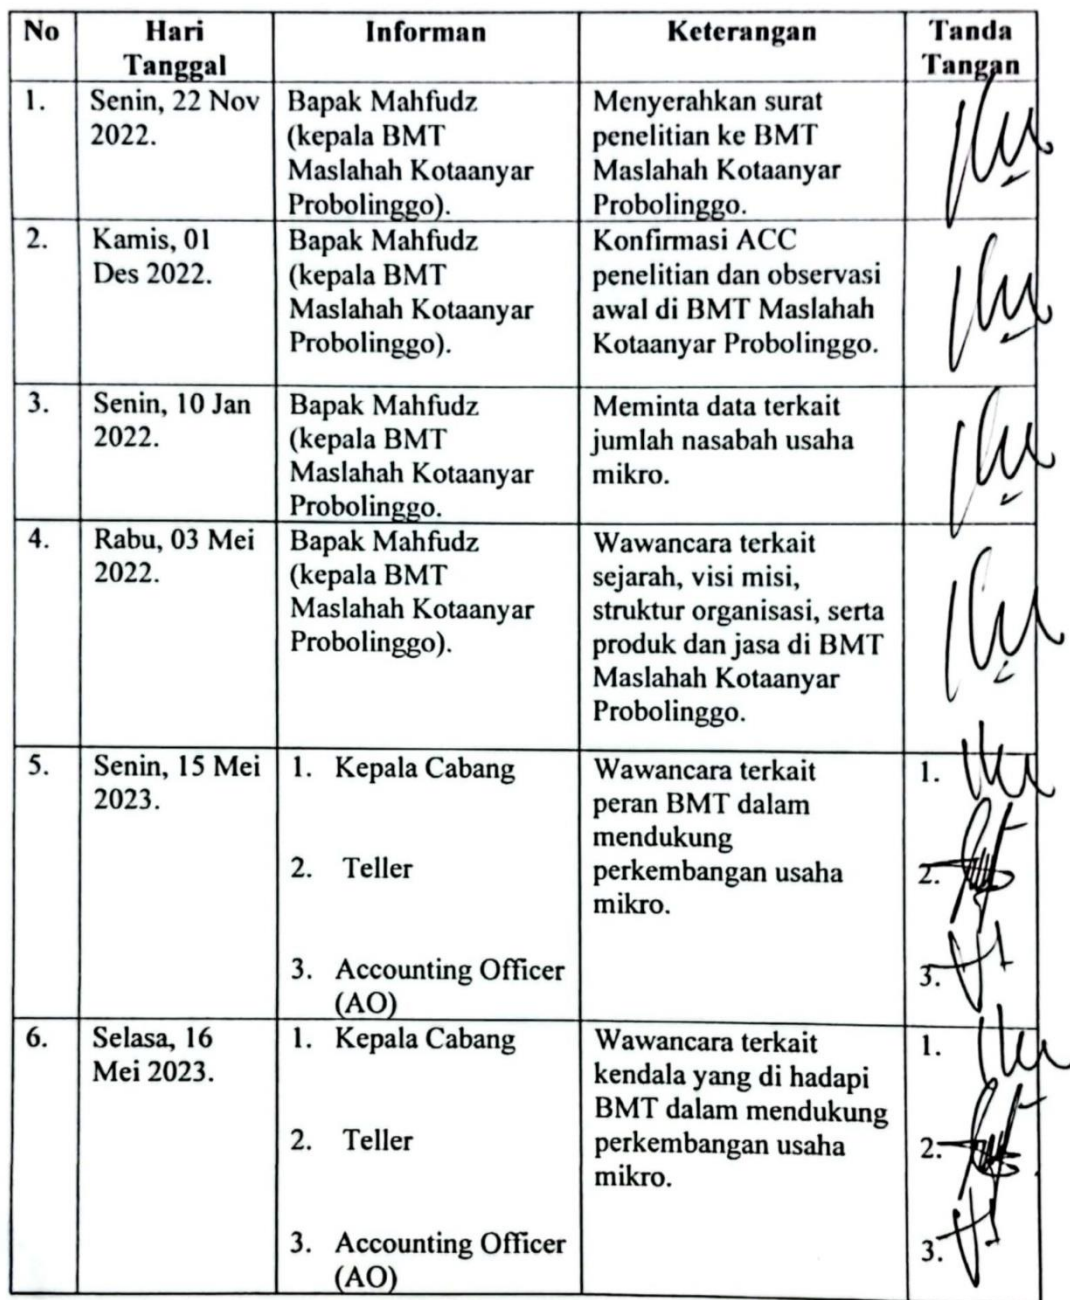 No
Hari
Tanggal
Informan
Keterangan
Tanda
Tangan
1.
Senin, 22 Nov
2022.
Bapak Mahfudz
(kepala BMT
Maslahah Kotaanyar
Probolinggo).
Menyerahkan surat
penelitian ke BMT
Maslahah Kotaanyar
Probolinggo.
2.
Kamis, 01
Des 2022.
Bapak Mahfudz
(kepala BMT
Maslahah Kotaanyar
Probolinggo).
Konfirmasi ACC
penelitian dan observasi
awal di BMT Maslahah
Kotaanyar Probolinggo.
3.
Senin, 10 Jan
2022.
Bapak Mahfudz
(kepala BMT
Maslahah Kotaanyar
Probolinggo.
Meminta data terkait
jumlah nasabah usaha
mikro.
4.
Rabu, 03 Mei
2022.
Bapak Mahfudz
(kepala BMT
Maslahah Kotaanyar
Probolinggo).
Wawancara terkait
sejarah, visi misi,
struktur organisasi, serta
produk dan jasa di BMT
Maslahah Kotaanyar
Probolinggo.
5.
Senin, 15 Mei
2023.
1. Kepala Cabang
2. Teller
3. Accounting Officer
(AO)
Wawancara terkait
peran BMT dalam
mendukung
perkembangan usaha
mikro.
1.
2.
3.
6.
Selasa, 16
Mei 2023.
1. Kepala Cabang
2. Teller
3. Accounting Officer
(AO)
Wawancara terkait
kendala yang di hadapi
BMT dalam mendukung
perkembangan usaha
mikro.
1.
2.
3.